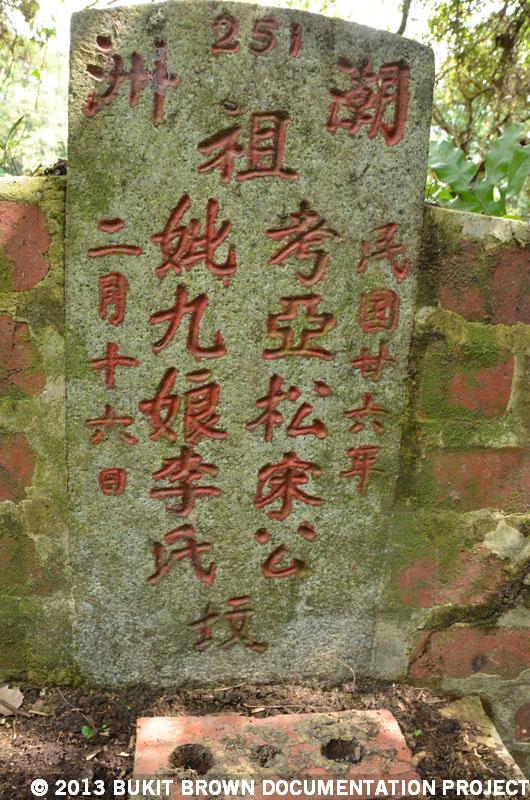 251
潮洲
祖
民国廿六年
考亞松宋公
妣九娘李氏
坟
二月十六日
© 2013 BUKIT BROWN DOCUMENTATION PROJECT